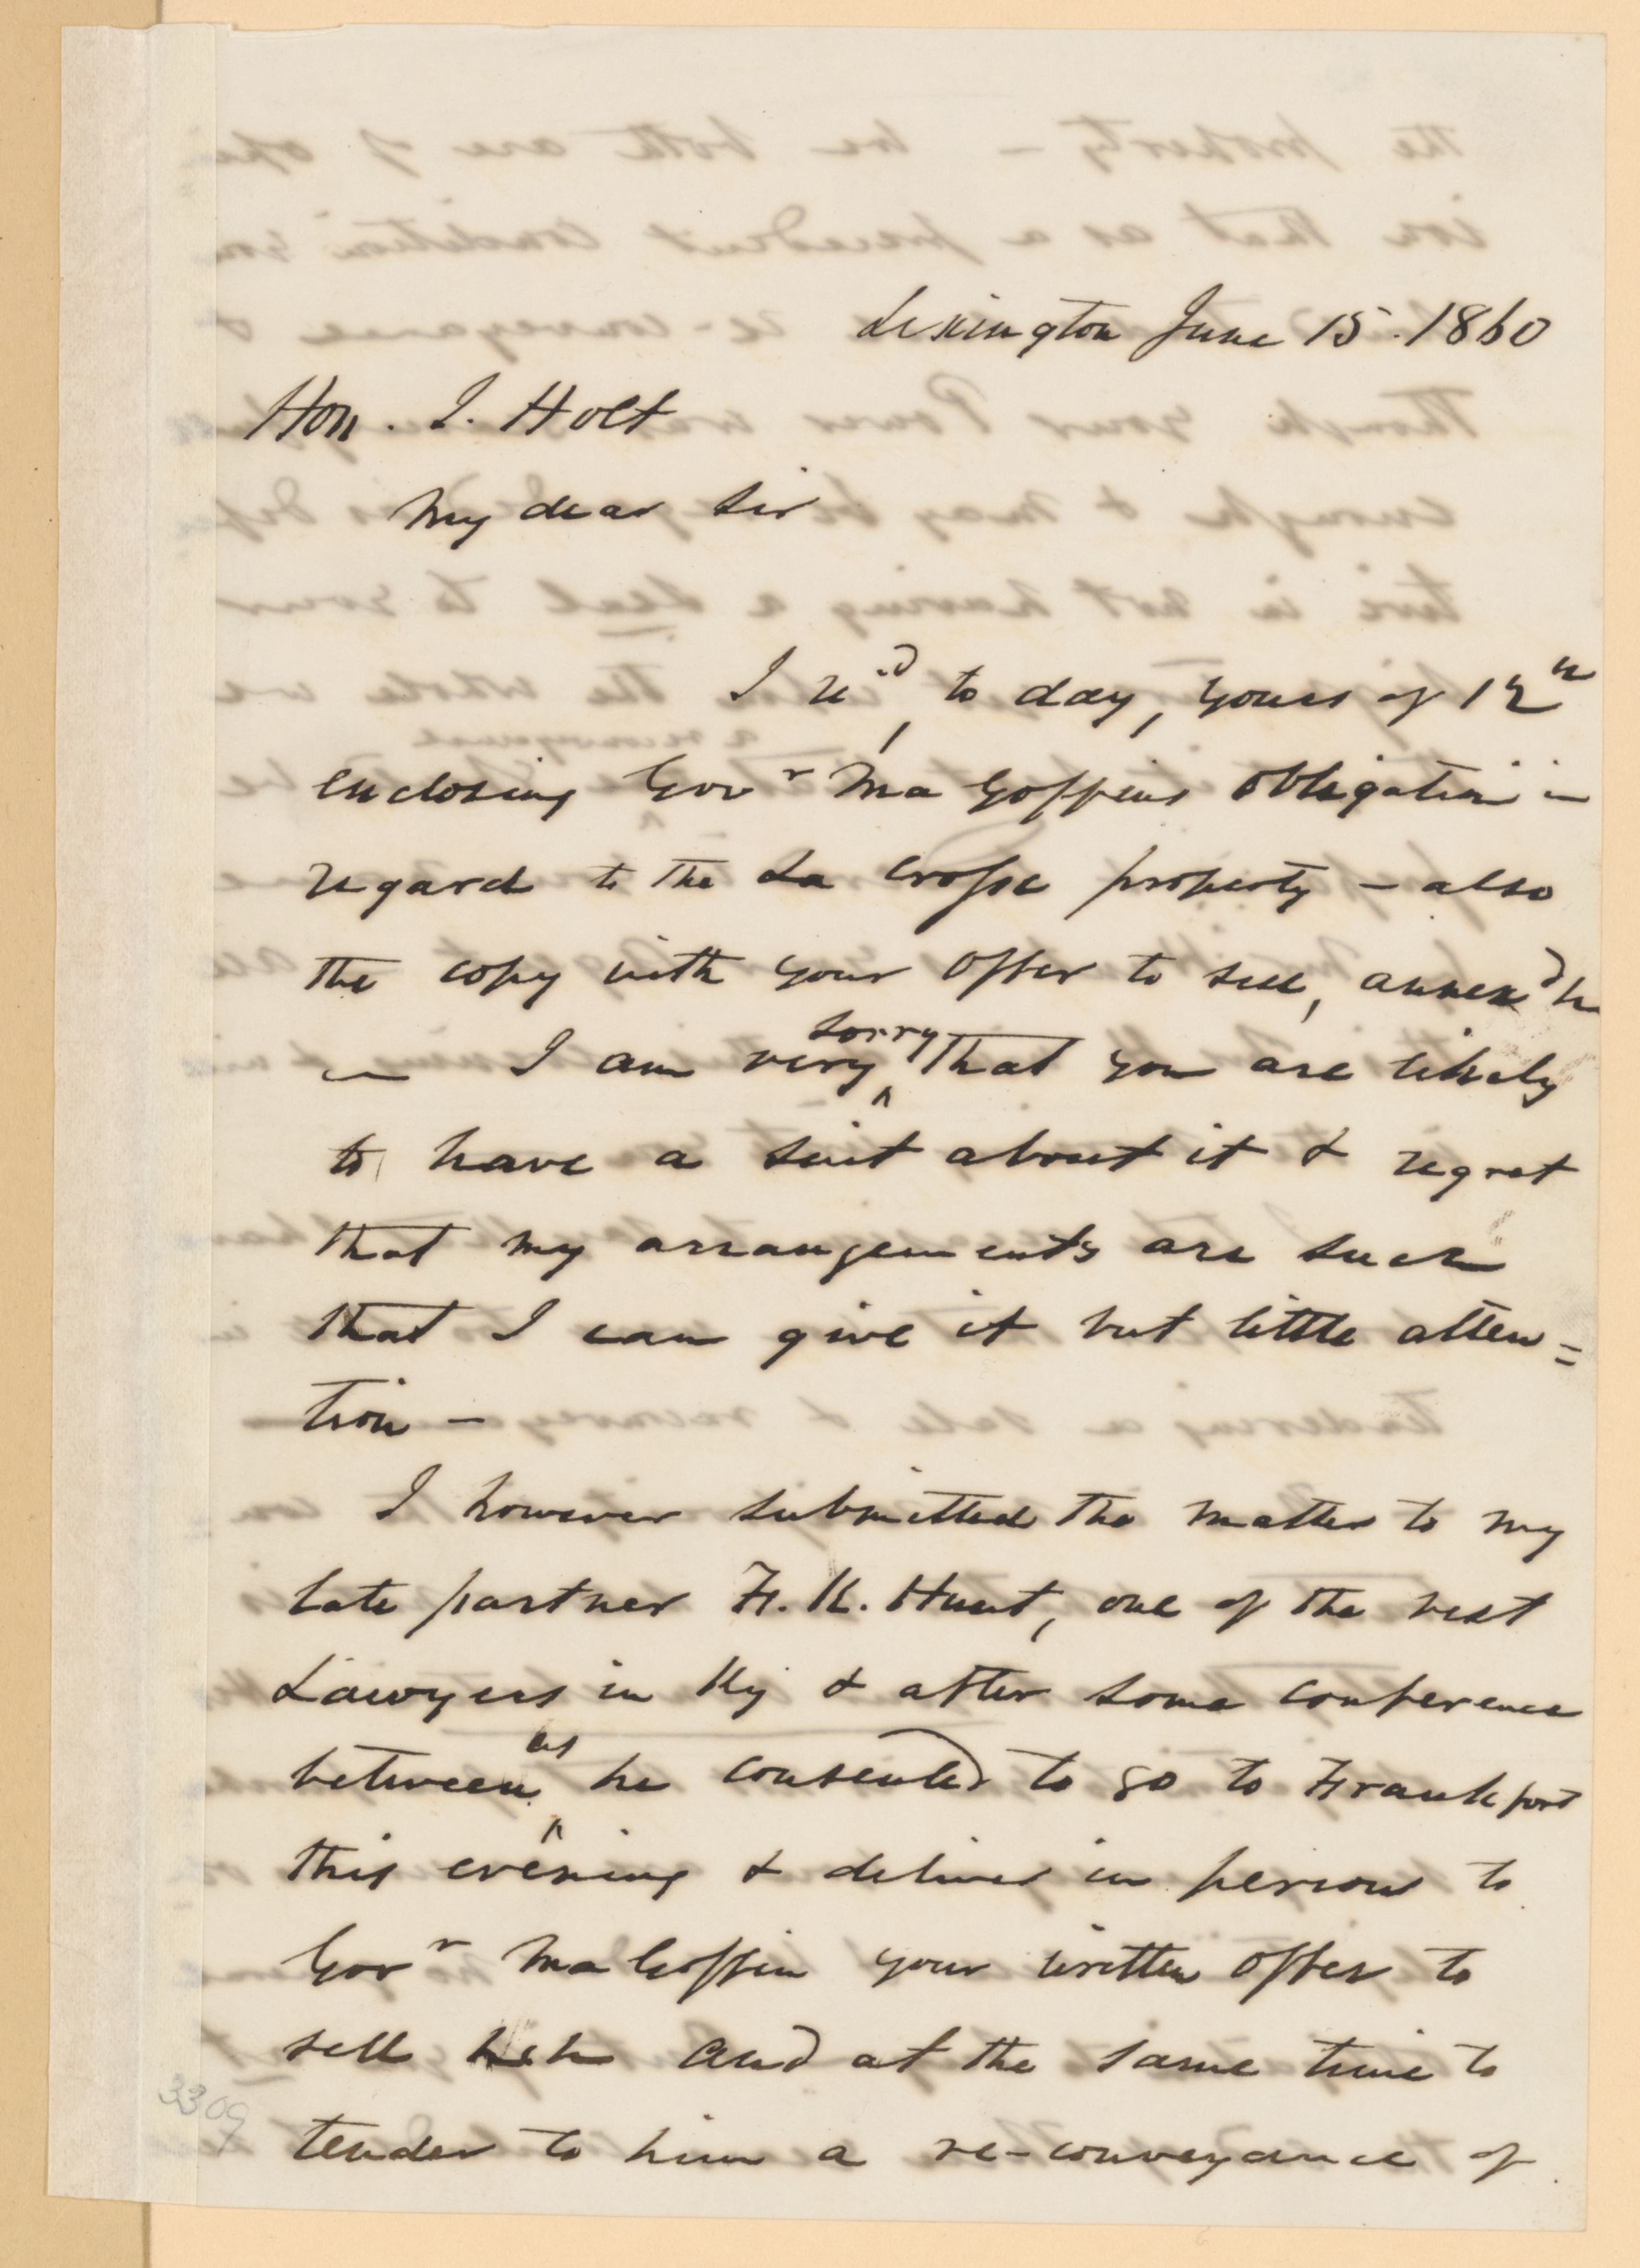 Lexington June 15. 1860
Hon. J. Holt
My dear Sir
I recd to day, yours of 12th
enclosing Govr Magoffins obligation in
regard to the La Crosse property - also
the copy with your offer to sell, annexd
I am very sorry that you are likely
to have a suit about it & regret
that my arrangements are such
that I can give it but little atten=
tion -
I however submitted the matter to my
late partner F. K. Hunt, one of the best
Lawyers in Ky & after some conference
between us he consented to go to Frankfort
this evening & deliver in person to
Govr Magoffin your written offer to
sell and at the same time to
tender to him a re-conveyance of
3309